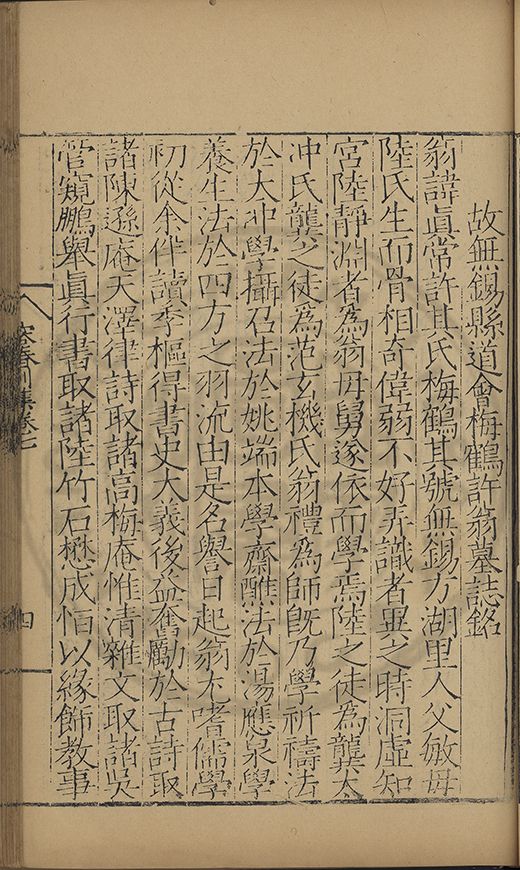 故無錫縣道會梅鶴許翁墓誌銘
翁諱眞常許其氏梅鶴其號無錫方湖里人父敏母
陸氏生而骨相奇偉弱不好弄識者異之時洞虛知
宮陸靜淵者為翁母舅遂依而學焉陸之徒為龔太
冲氏龔之徒為范玄機氏翁禮為師旣乃學祈禱法
於大冲學攝召法於姚端本學齋醮法於湯應泉學
養生法於四方之羽流由是名譽日起翁尤嗜儒學
初從余伴讀季樞得書史大義後益奮勵於古詩取
諸陳遜庵天澤律詩取諸高梅庵惟清雜文取諸吳
管窺鵬舉眞行書取諸陸竹石懋成恒以緣飾教事
集卷七
四